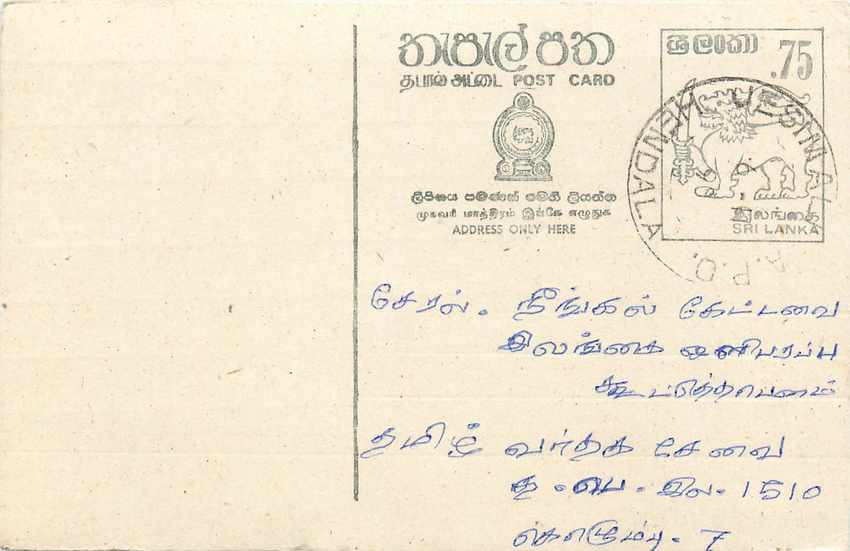 තැපැල් පත
தபால் அட்டை POST CARD
ලිපිනය පමණක් මෙහි ලියන්න
முகவரி மாத்திரம் இங்கே எழுதுக
ADDRESS ONLY HERE
ශ්‍රී ලංකා
.75
இலங்கை
SRI LANKA
HENDALA
A.P.O.
சேரல். நீங்கல் கேட்டவை
இலங்கை ஒலிபரப்பு
கூட்டுத்தாபனம்
தமிழ் வர்தக சேவை
த.பெ.இல. 1510
கொழும்பு. 7